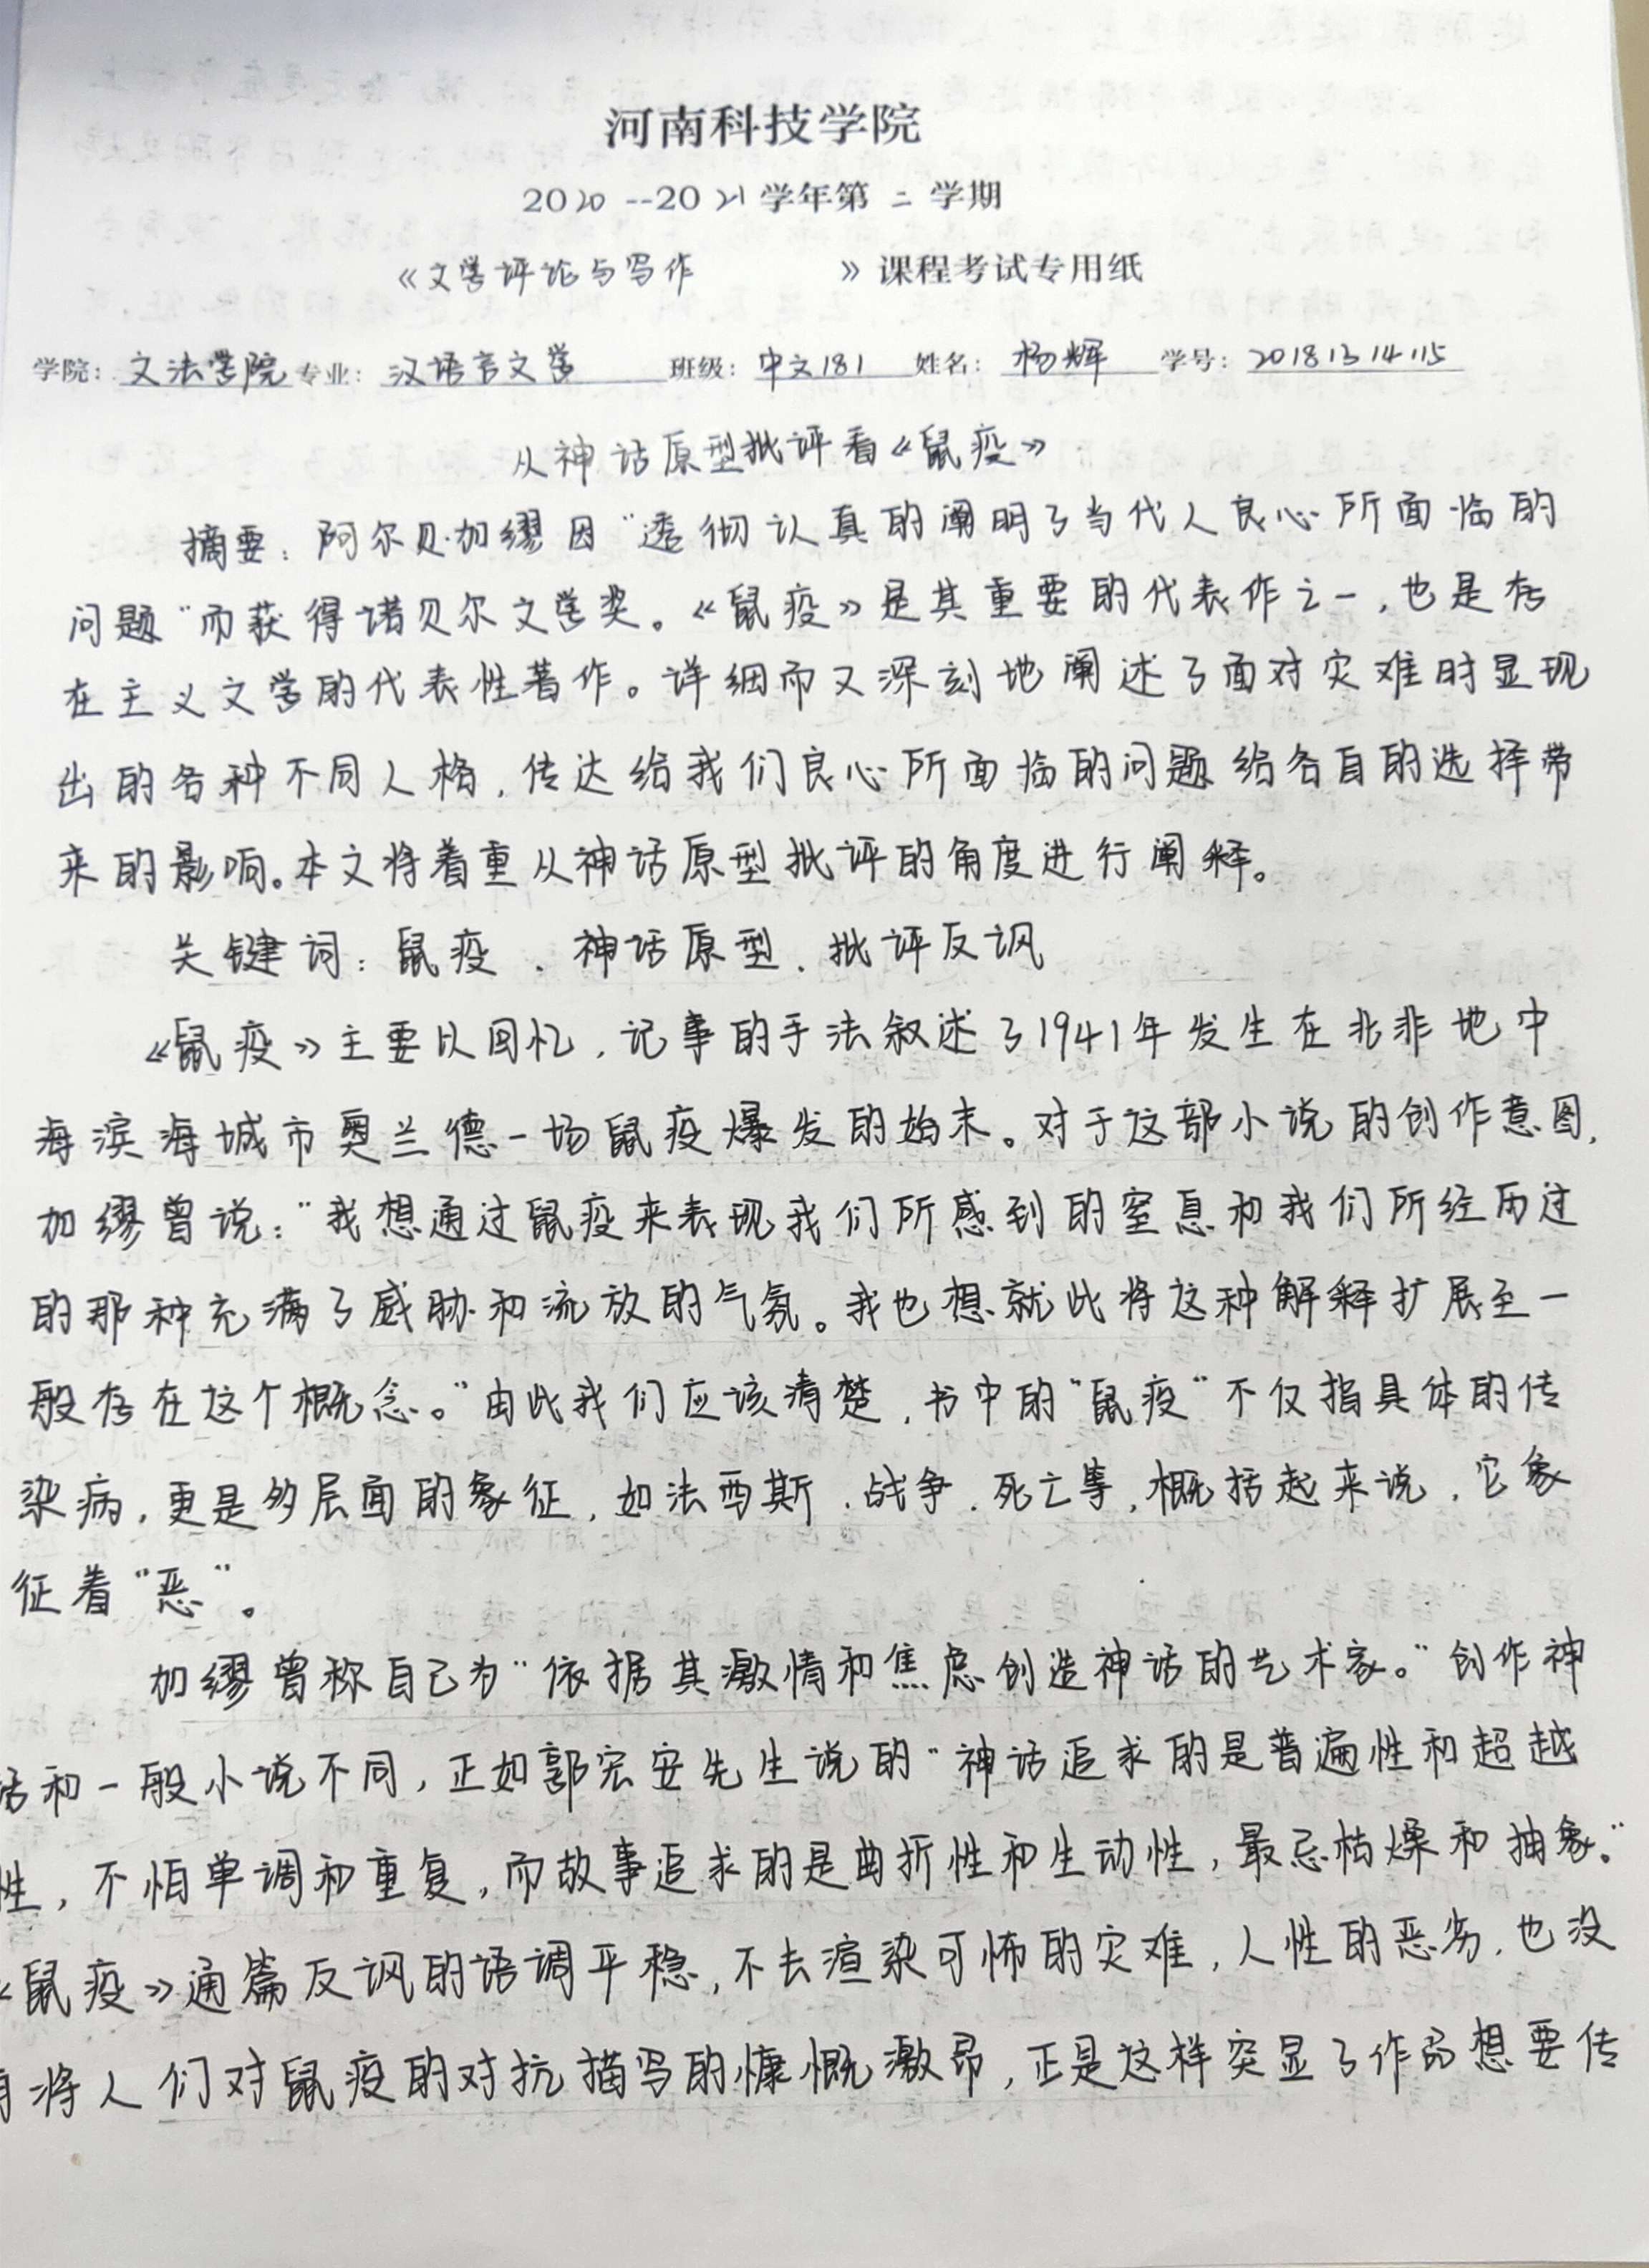 河南科技学院
2020--2021学年第二学期
《文学评论与写作》课程考试专用纸
学院：文法学院 专业：汉语言文学 班级：中文181 姓名：杨辉 学号：20181314115
从神话原型批评看《鼠疫》
摘要：阿尔贝·加缪因“透彻认真的阐明了当代人良心所面临的
问题”而获得诺贝尔文学奖。《鼠疫》是其重要的代表作之一，也是存
在主义文学的代表性著作。详细而又深刻地阐述了面对灾难时显现
出的各种不同人格，传达给我们良心所面临的问题给各自的选择带
来的影响。本文将着重从神话原型批评的角度进行阐释。
关键词：鼠疫、神话原型、批评反讽
《鼠疫》主要以回忆，记事的手法叙述了1941年发生在北非地中
海滨海城市奥兰德一场鼠疫爆发的始末。对于这部小说的创作意图，
加缪曾说：“我想通过鼠疫来表现我们所感到的窒息和我们所经历过
的那种充满了威胁和流放的气氛。我也想就此将这种解释扩展至一
般存在这个概念。”由此我们应该清楚，书中的“鼠疫”不仅指具体的传
染病，更是多层面的象征，如法西斯、战争、死亡等，概括起来说，它象
征着“恶”。
加缪曾称自己为“依据其激情和焦虑创造神话的艺术家。”创作神
话和一般小说不同，正如郭宏安先生说的“神话追求的是普遍性和超越
性，不怕单调和重复，而故事追求的是曲折性和生动性，最忌枯燥和抽象。”
《鼠疫》通篇反讽的语调平稳，不去渲染可怖的灾难，人性的恶劣，也没
有将人们对鼠疫的对抗描写的慷慨激昂，正是这样突显了作品想要传